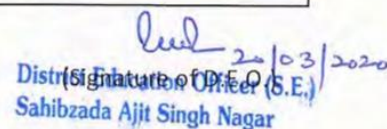 20/03/2020
(Signature of D.E.O.)
District Education Officer (S.E.)
Sahibzada Ajit Singh Nagar